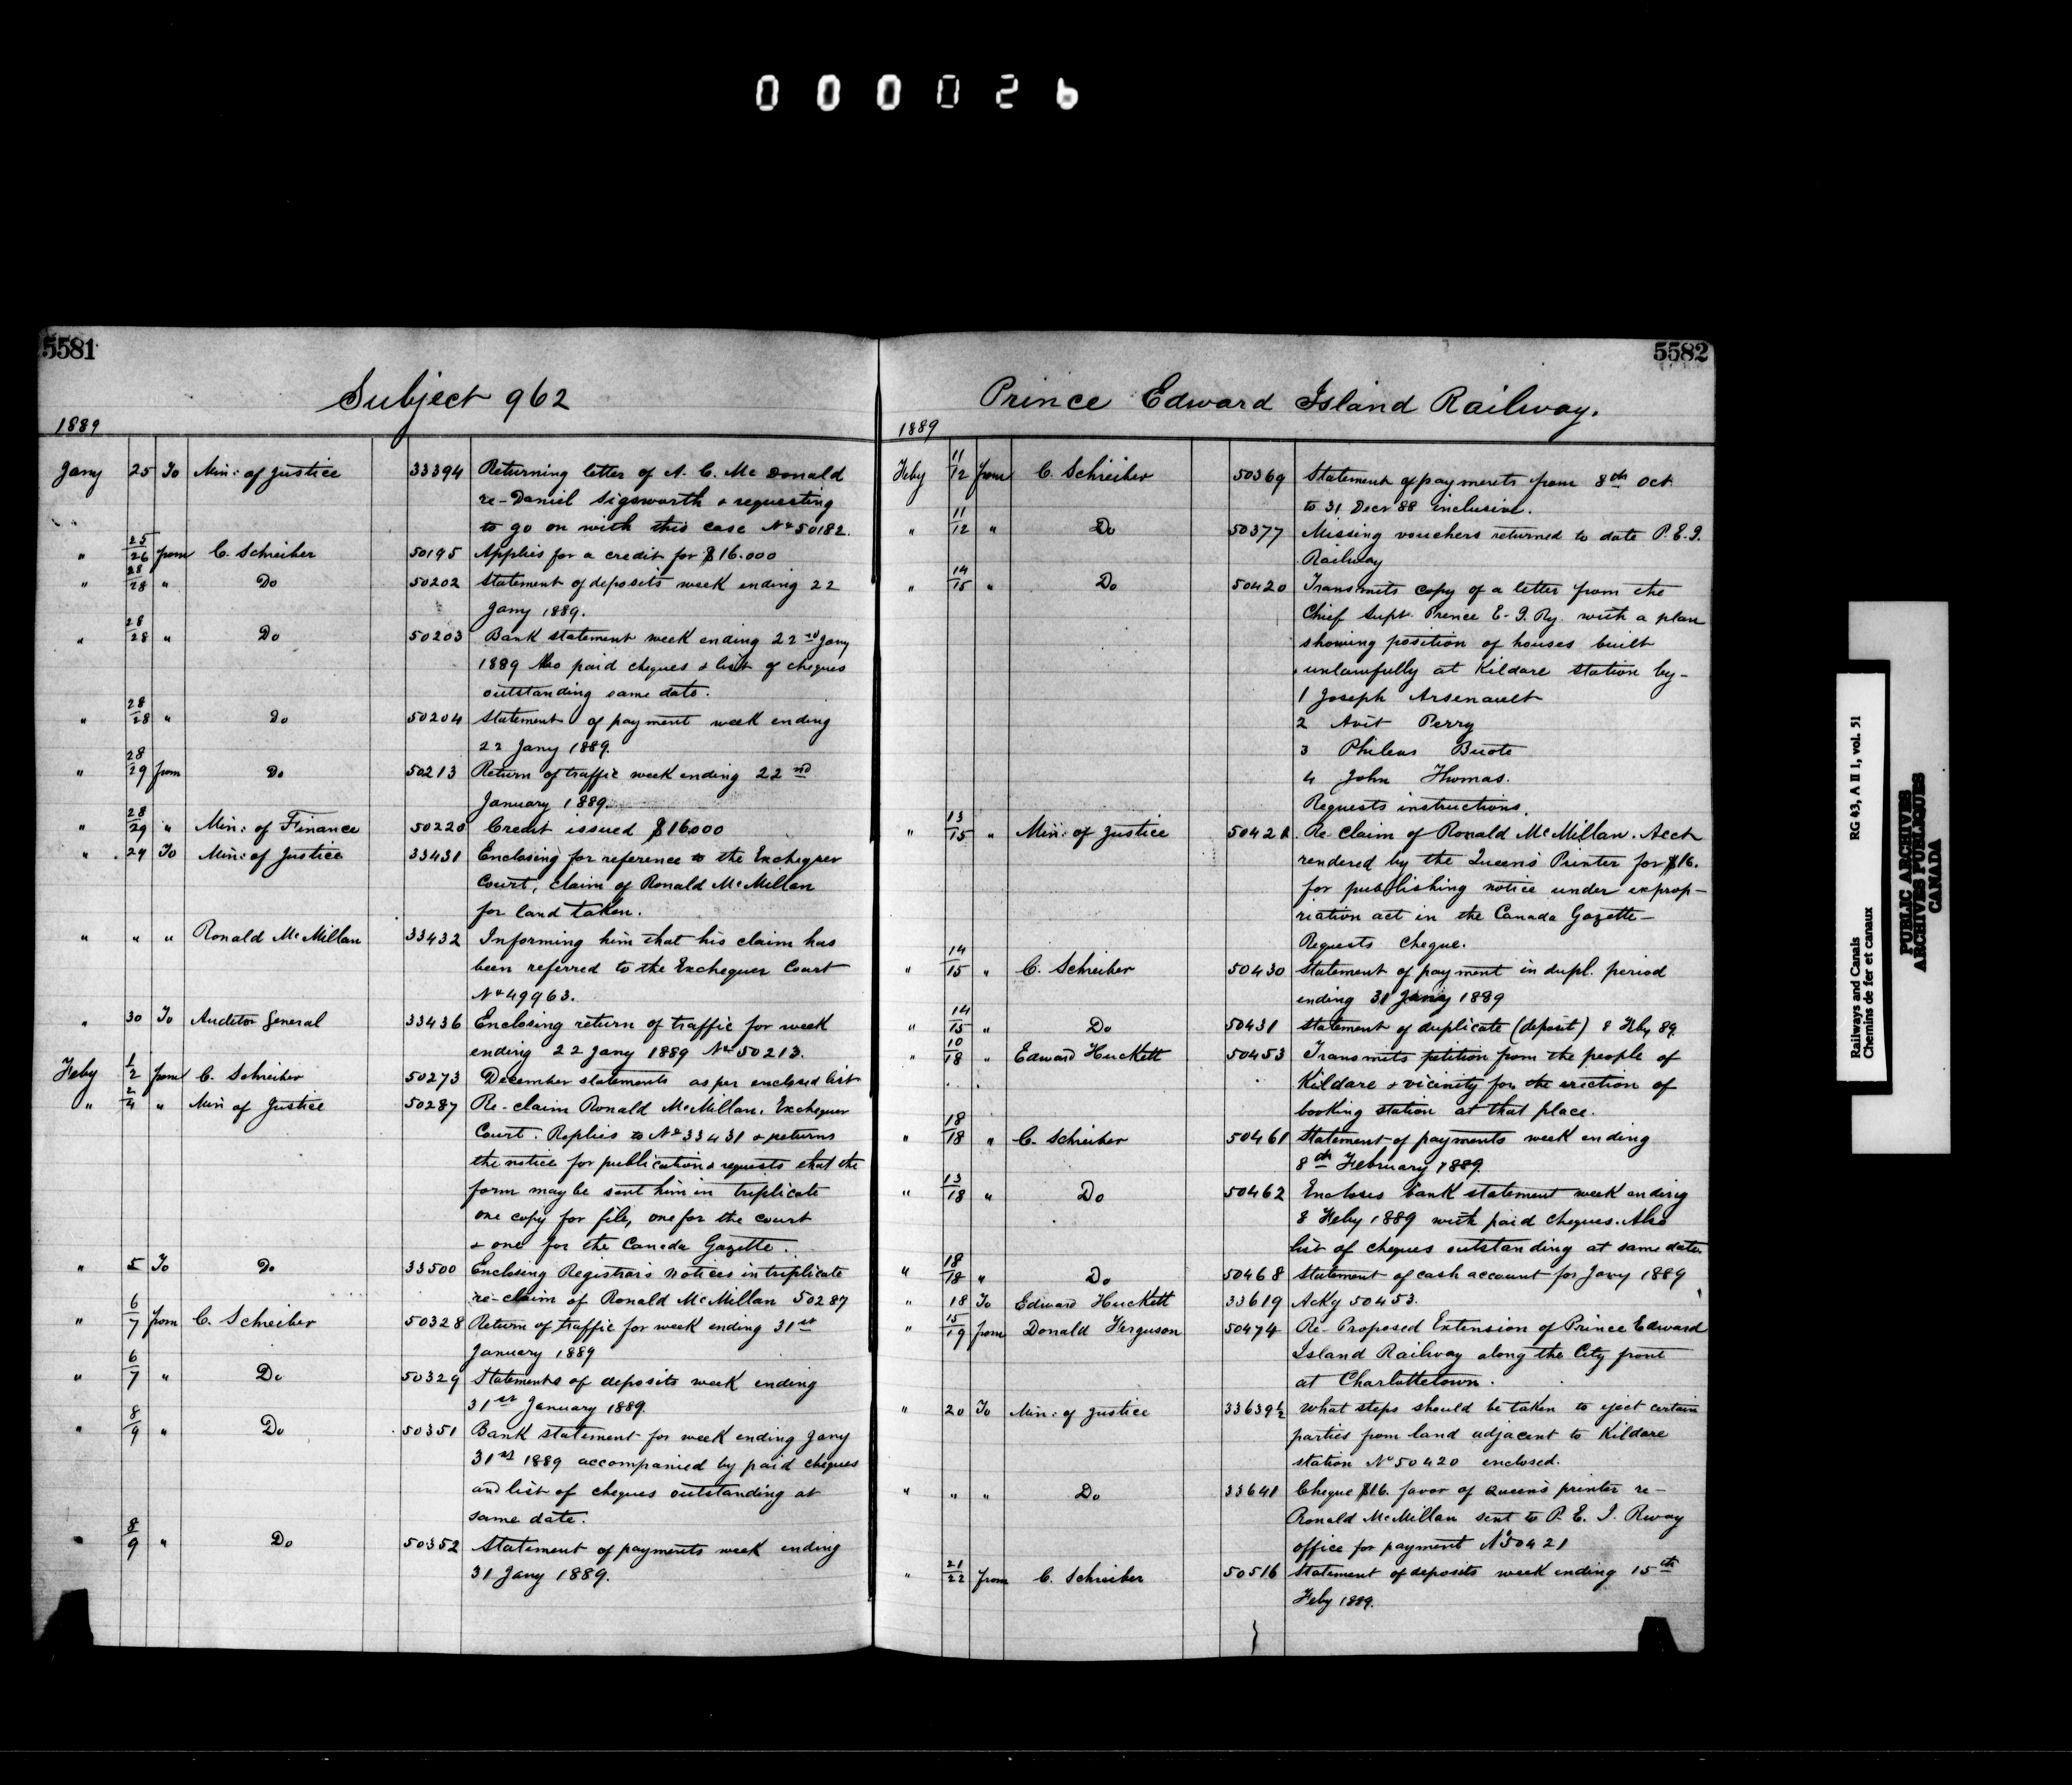 000026
5581
Subject 962
1889
Jany 25 To Min: of Justice 33394 Returning letter of A. C. McDonald
re-Daniel Sigsworth & requesting
to go on with this case No 50182.
" 25/26 from C. Schreiber 50195 Applies for a credit for $16.000
" 28/28 " Do 50202 Statement of deposits week ending 22
Jany 1889.
" 28/28 " Do 50203 Bank statement week ending 22nd Jany
1889 Also paid cheques & list of cheques
outstanding same date.
" 28/28 " Do 50204 Statement of payment week ending
22 Jany 1889.
" 28/29 from Do 50213 Return of traffic week ending 22nd
January 1889.
" 28/29 " Min: of Finance 50220 Credit issued $16000
" 29 To Min: of Justice 33431 Enclosing for reference to the Exchequer
Court, claim of Ronald McMillan
for land taken.
" " " Ronald McMillan 33432 Informing him that his claim has
been referred to the Exchequer Court
No 49963.
" 30 To Auditor General 33436 Enclosing return of traffic for week
ending 22 Jany 1889 No 50213.
Feby 1/2 from C. Schreiber 50273 December statements as per enclosed list
" 2/4 " Min of Justice 50287 Re-claim Ronald McMillan. Exchequer
Court. Replies to No 33431 & returns
the notice for publication & requests that the
form may be sent him in triplicate
one copy for file, one for the court
& one for the Canada Gazette.
" 5 To Do 33500 Enclosing Registrar's notices in triplicate
re-claim of Ronald McMillan 50287
" 6/7 from C. Schreiber 50328 Return of traffic for week ending 31st
January 1889
" 6/7 " Do 50329 Statements of deposits week ending
31st January 1889.
" 8/9 " Do 50351 Bank statement for week ending Jany
31st 1889 accompanied by paid cheques
and list of cheques outstanding at
same date.
" 8/9 " Do 50352 Statement of payments week ending
31 Jany 1889.
5582
Prince Edward Island Railway.
1889
Feby 11/12 from C. Schreiber 50369 Statement of payments from 8th Oct.
to 31 Decr 88 inclusive.
" 11/12 " Do 50377 Missing vouchers returned to date P.E.I.
Railway
" 14/15 " Do 50420 Transmits copy of a letter from the
Chief Supt. Prince E. I. Ry. with a plan
showing position of houses built
unlawfully at Kildare station by-
1 Joseph Arsenault
2 Avit Perry
3 Phileas Buote
4 John Thomas.
Requests instructions.
" 13/15 " Min: of Justice 50421 Re claim of Ronald McMillan. Acct
rendered by the Queen's Printer for $16.
for publishing notice under exprop-
riation act in the Canada Gazette-
Requests cheque.
" 14/15 " C. Schreiber 50430 Statement of payment in dupl. period
ending 31 Jany 1889
" 14/15 " Do 50431 Statement of duplicate (deposit) 8 Feby 89.
" 10/18 " Edward Huckett 50453 Transmits petition from the people of
Kildare & vicinity for the erection of
booking station at that place.
" 18/18 " C. Schreiber 50461 Statement of payments week ending
8th February 1889.
" 13/18 " Do 50462 Encloses bank statement week ending
8 Feby 1889 with paid cheques. Also
list of cheques outstanding at same date.
" 18/18 " Do 50468 Statement of cash account for Jany 1889
" 18 To Edward Huckett 33619 Ackg 50453.
" 15/19 from Donald Ferguson 50474 Re-Proposed Extension of Prince Edward
Island Railway along the City front
at Charlottetown.
" 20 To Min: of Justice 33639½ What steps should be taken to eject certain
parties from land adjacent to Kildare
station No 50420 enclosed.
" " " Do 33641 Cheque $16. favor of Queen's printer re-
Ronald McMillan sent to P. E. I. Rway
office for payment No 50421
" 21/22 from C. Schreiber 50516 Statement of deposits week ending 15th
Feby 1889.
Railways and Canals RG 43, A II 1, vol. 51
Chemins de fer et canaux
PUBLIC ARCHIVES
ARCHIVES PUBLIQUES
CANADA